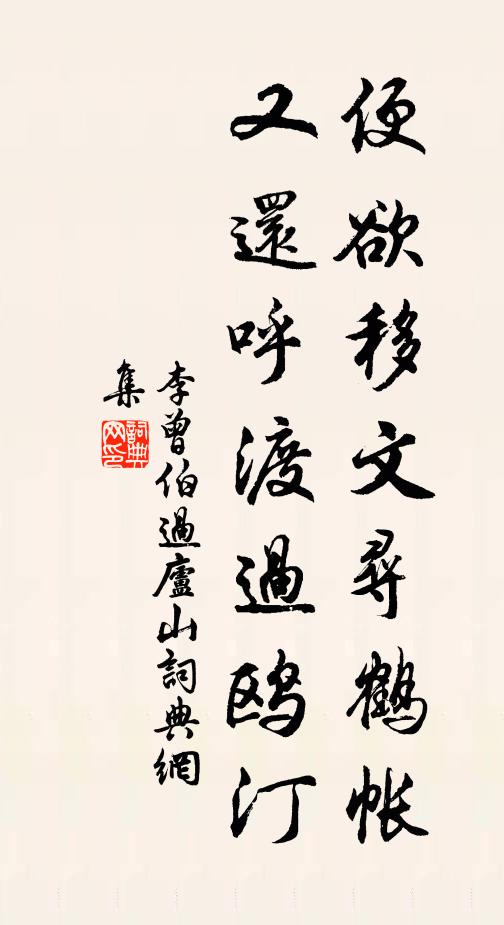 便欲移文尋鶴帳
又還呼渡過鷗汀
李曾伯過廬山詞典網
集
詞典網印